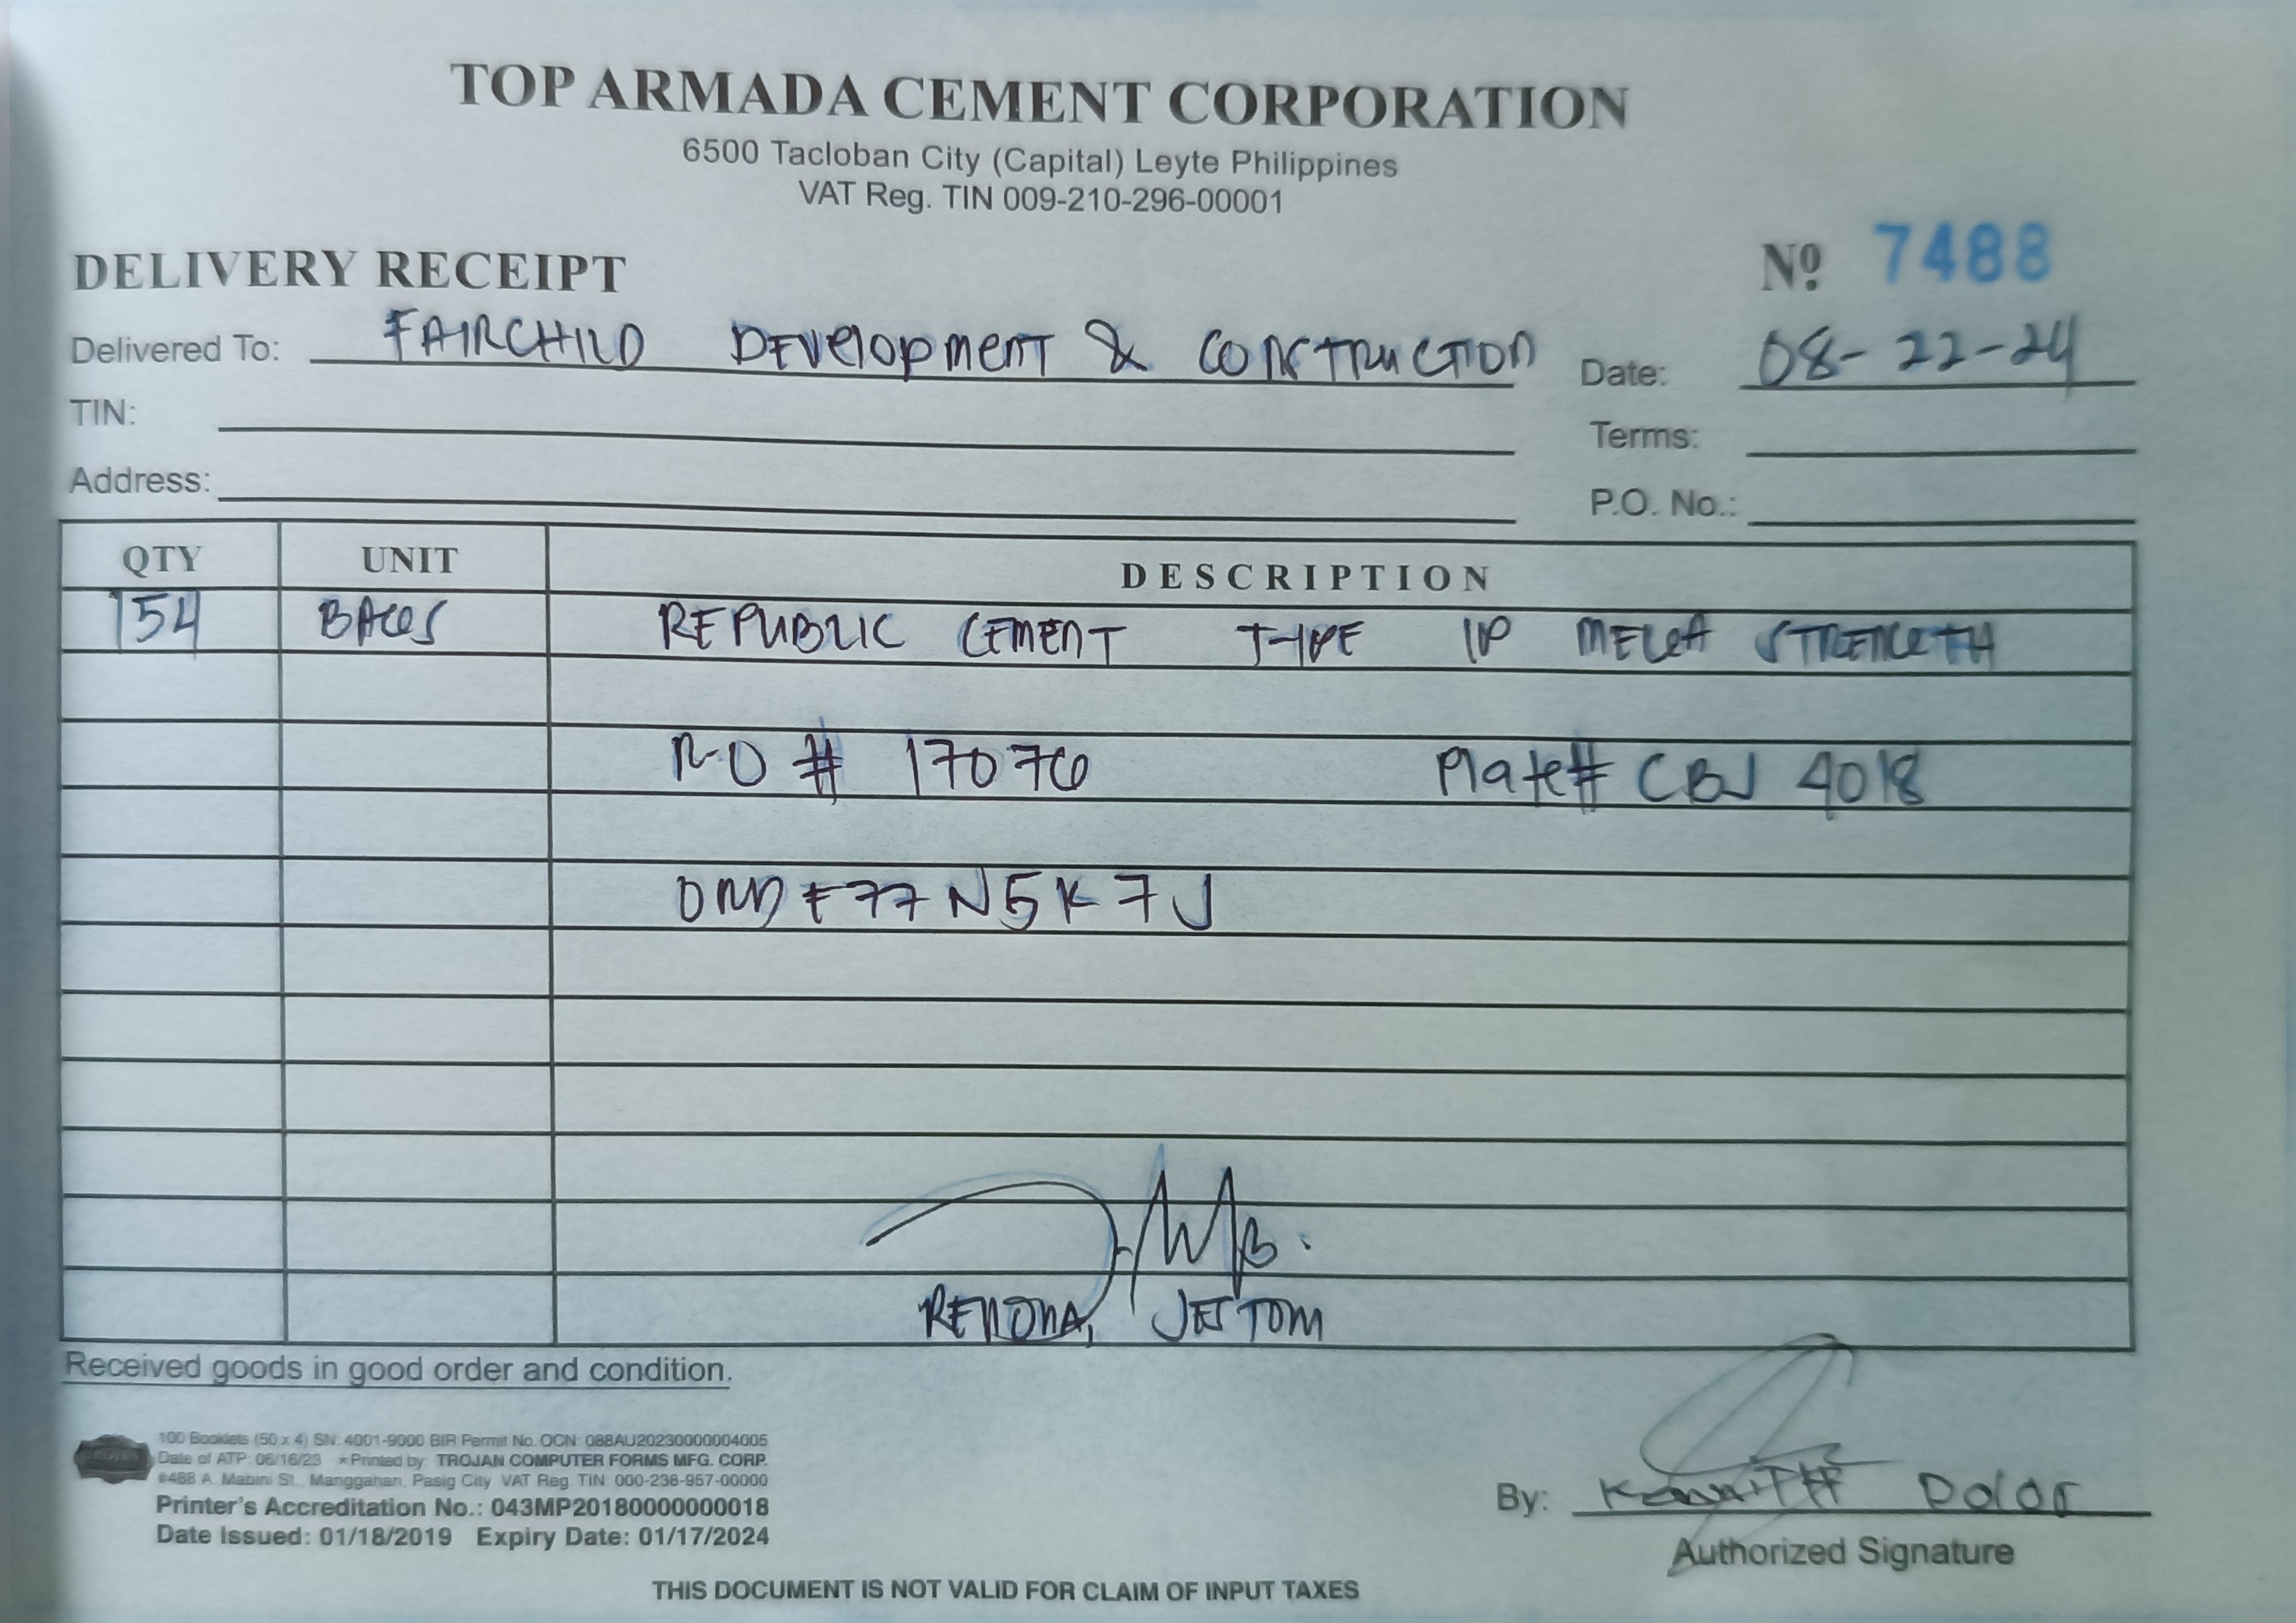 TOP ARMADA CEMENT CORPORATION
6500 Tacloban City (Capital) Leyte Philippines
VAT Reg. TIN 009-210-296-00001
DELIVERY RECEIPT
Nº 7488
Delivered To: FAIRCHILD DEVElopmENT & CONSTRUCTION
Date: 08-22-24
TIN:
Terms:
Address:
P.O. No.:
QTY UNIT DESCRIPTION
154 BAGS REPUBLIC CEMENT TYPE 1P MEGA STRENGTH
R-O # 17076 Plate# CBJ 4018
77N5K7J
JES TOM
Received goods in good order and condition.
100 Booklets (50 x 4) SN: 4001-9000 BIR Permit No. OCN: 088AU20230000004005
Date of ATP: 06/16/23 *Printed by: TROJAN COMPUTER FORMS MFG. CORP.
#488 A. Mabini St., Manggahan, Pasig City VAT Reg. TIN: 000-238-957-00000
Printer's Accreditation No.: 043MP20180000000018
Date Issued: 01/18/2019 Expiry Date: 01/17/2024
By: Dolor
Authorized Signature
THIS DOCUMENT IS NOT VALID FOR CLAIM OF INPUT TAXES